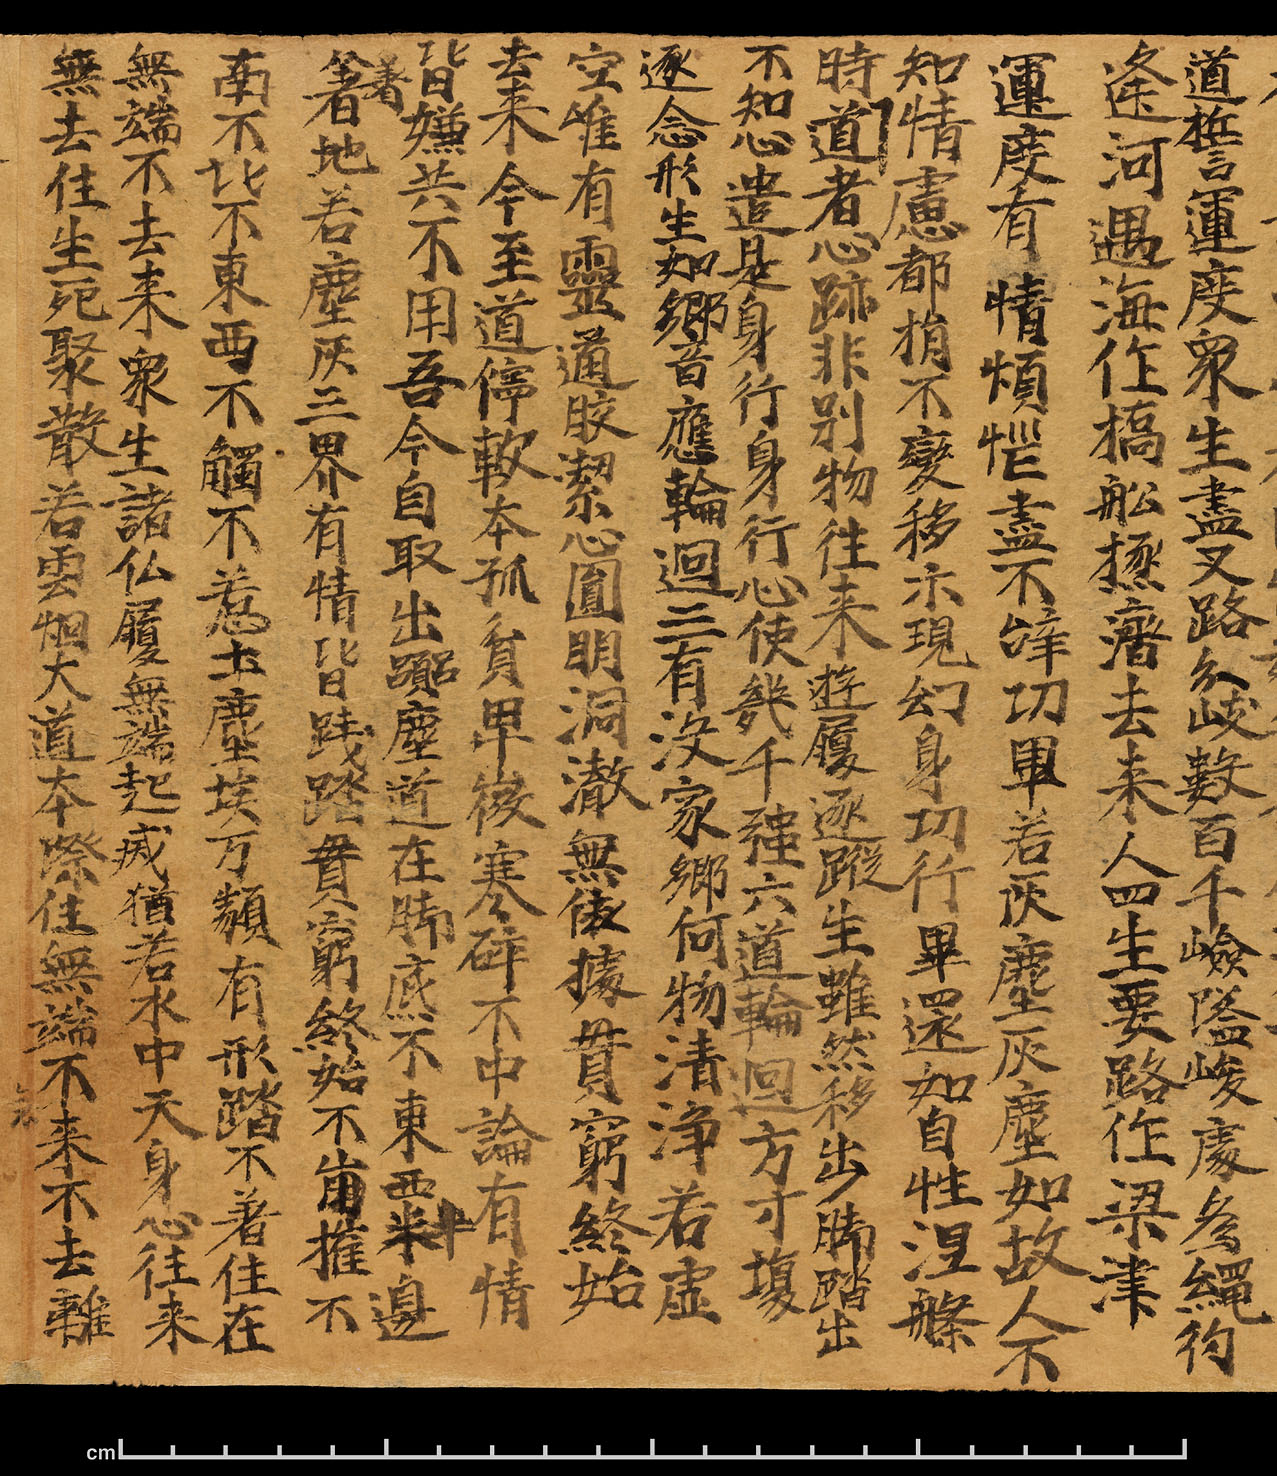 道誓運度衆生盡叉路久岐數百千嶮隘峻處為繩彴
逢河遇海作橋舩拯濟去来人四生要路作梁津
運度有情煩惱盡不辝切軍若灰塵灰塵如故人不
知情慮都捐不變移示現幻身切行畢還如自性涅槃
時道者心跡非別物往来遊履逐蹤生雖然移出脚踏出
不知心遣是身行身行心使幾千種六道輪迴方寸塸
逐念形生如鄉音應輪迴三有没家鄉何物清浄若虚
空唯有靈通胶潔心圓明洞澈無依據貫窮終始
去来今至道停軟本孤貧卑後寒碎不中論有情
皆嫌共不用吾今自取出躢塵道在脚底不東西半邊
著地若塵灰三界有情皆践踏貫窮終始不崩摧不
南不北不東西不觸不惹土塵埃万類有形踏不著住在
無端不去来衆生諸仏履無端起滅猶若水中天身心往来
無去住生死聚散若雲烟大道本際住無端不来不去離